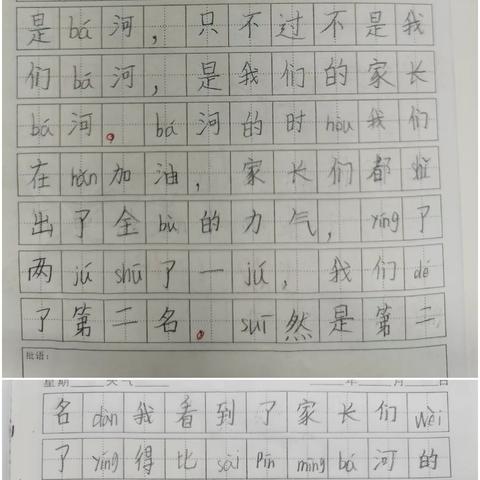 是bá河，只不过不是我
们bá河，是我们的家长
bá河。bá河的时hòu我们
在hǎn加油，家长们都
出了全bù的力气，yíng了
两jú shū了一jú，我们dé
了第二名。suī然是第二
批语：
星期 天气 年 月 日
名dàn我看到了家长们wèi
了yíng得比sài pīn mìng bá河的